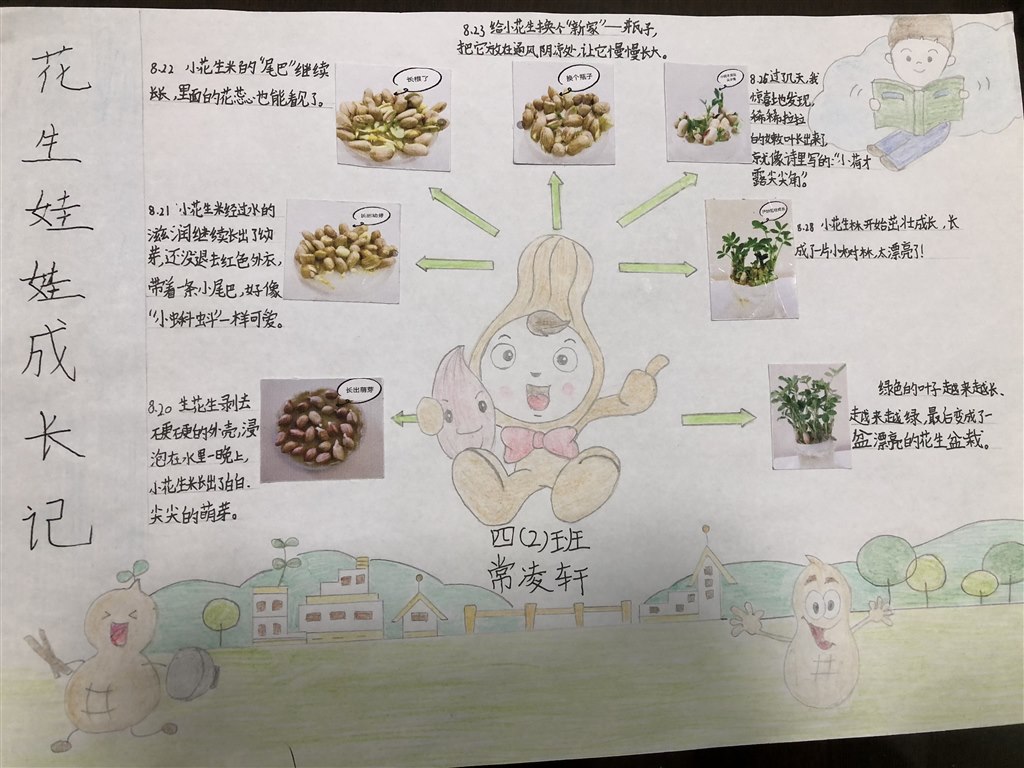 花生娃娃成长记
8.20 生花生剥去
硬硬的外壳,浸
泡在水里一晚上,
小花生米长出了白白、
尖尖的萌芽。
长出萌芽
8.21 小花生米经过水的
滋润继续长出了幼
芽,还没退去红色外衣,
带着一条小尾巴,好像
“小蝌蚪”一样可爱。
8.22 小花生米的“尾巴”继续
长长,里面的花蕊心也能看见了。
长根了
8.23 给小花生换个“新家”——瓶子,
把它放在通风阴凉处,让它慢慢长大。
换个瓶子
8.26 过了几天,我
惊喜地发现,
稀稀拉拉
的嫩叶长出来了,
就像诗里写的:“小荷才
露尖尖角”。
8.28 小花生林开始茁壮成长,长
成了一片小树林,太漂亮了!
绿色的叶子越来越长、
越来越绿,最后变成了一
盆漂亮的花生盆栽。
四(2)班
常凌轩